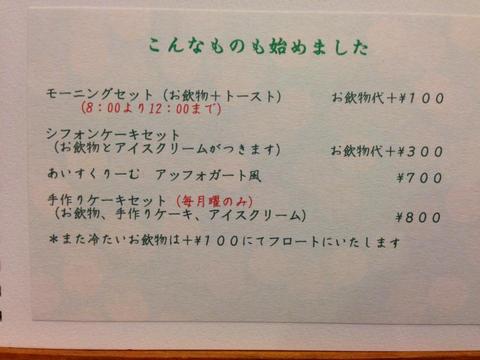 こんなものも始めました
モーニングセット（お飲物＋トースト）　お飲物代＋¥１００
（8：00より12：00まで）
シフォンケーキセット
（お飲物とアイスクリームがつきます）　お飲物代＋¥３００
あいすくりーむ　アッフォガート風　¥７００
手作りケーキセット（毎月曜のみ）
（お飲物、手作りケーキ、アイスクリーム）　¥８００
＊また冷たいお飲物は＋¥１００にてフロートにいたします